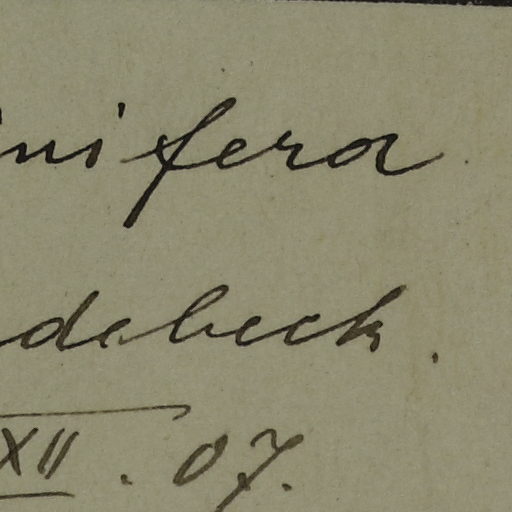 inifera
debeck.
XII. 07.